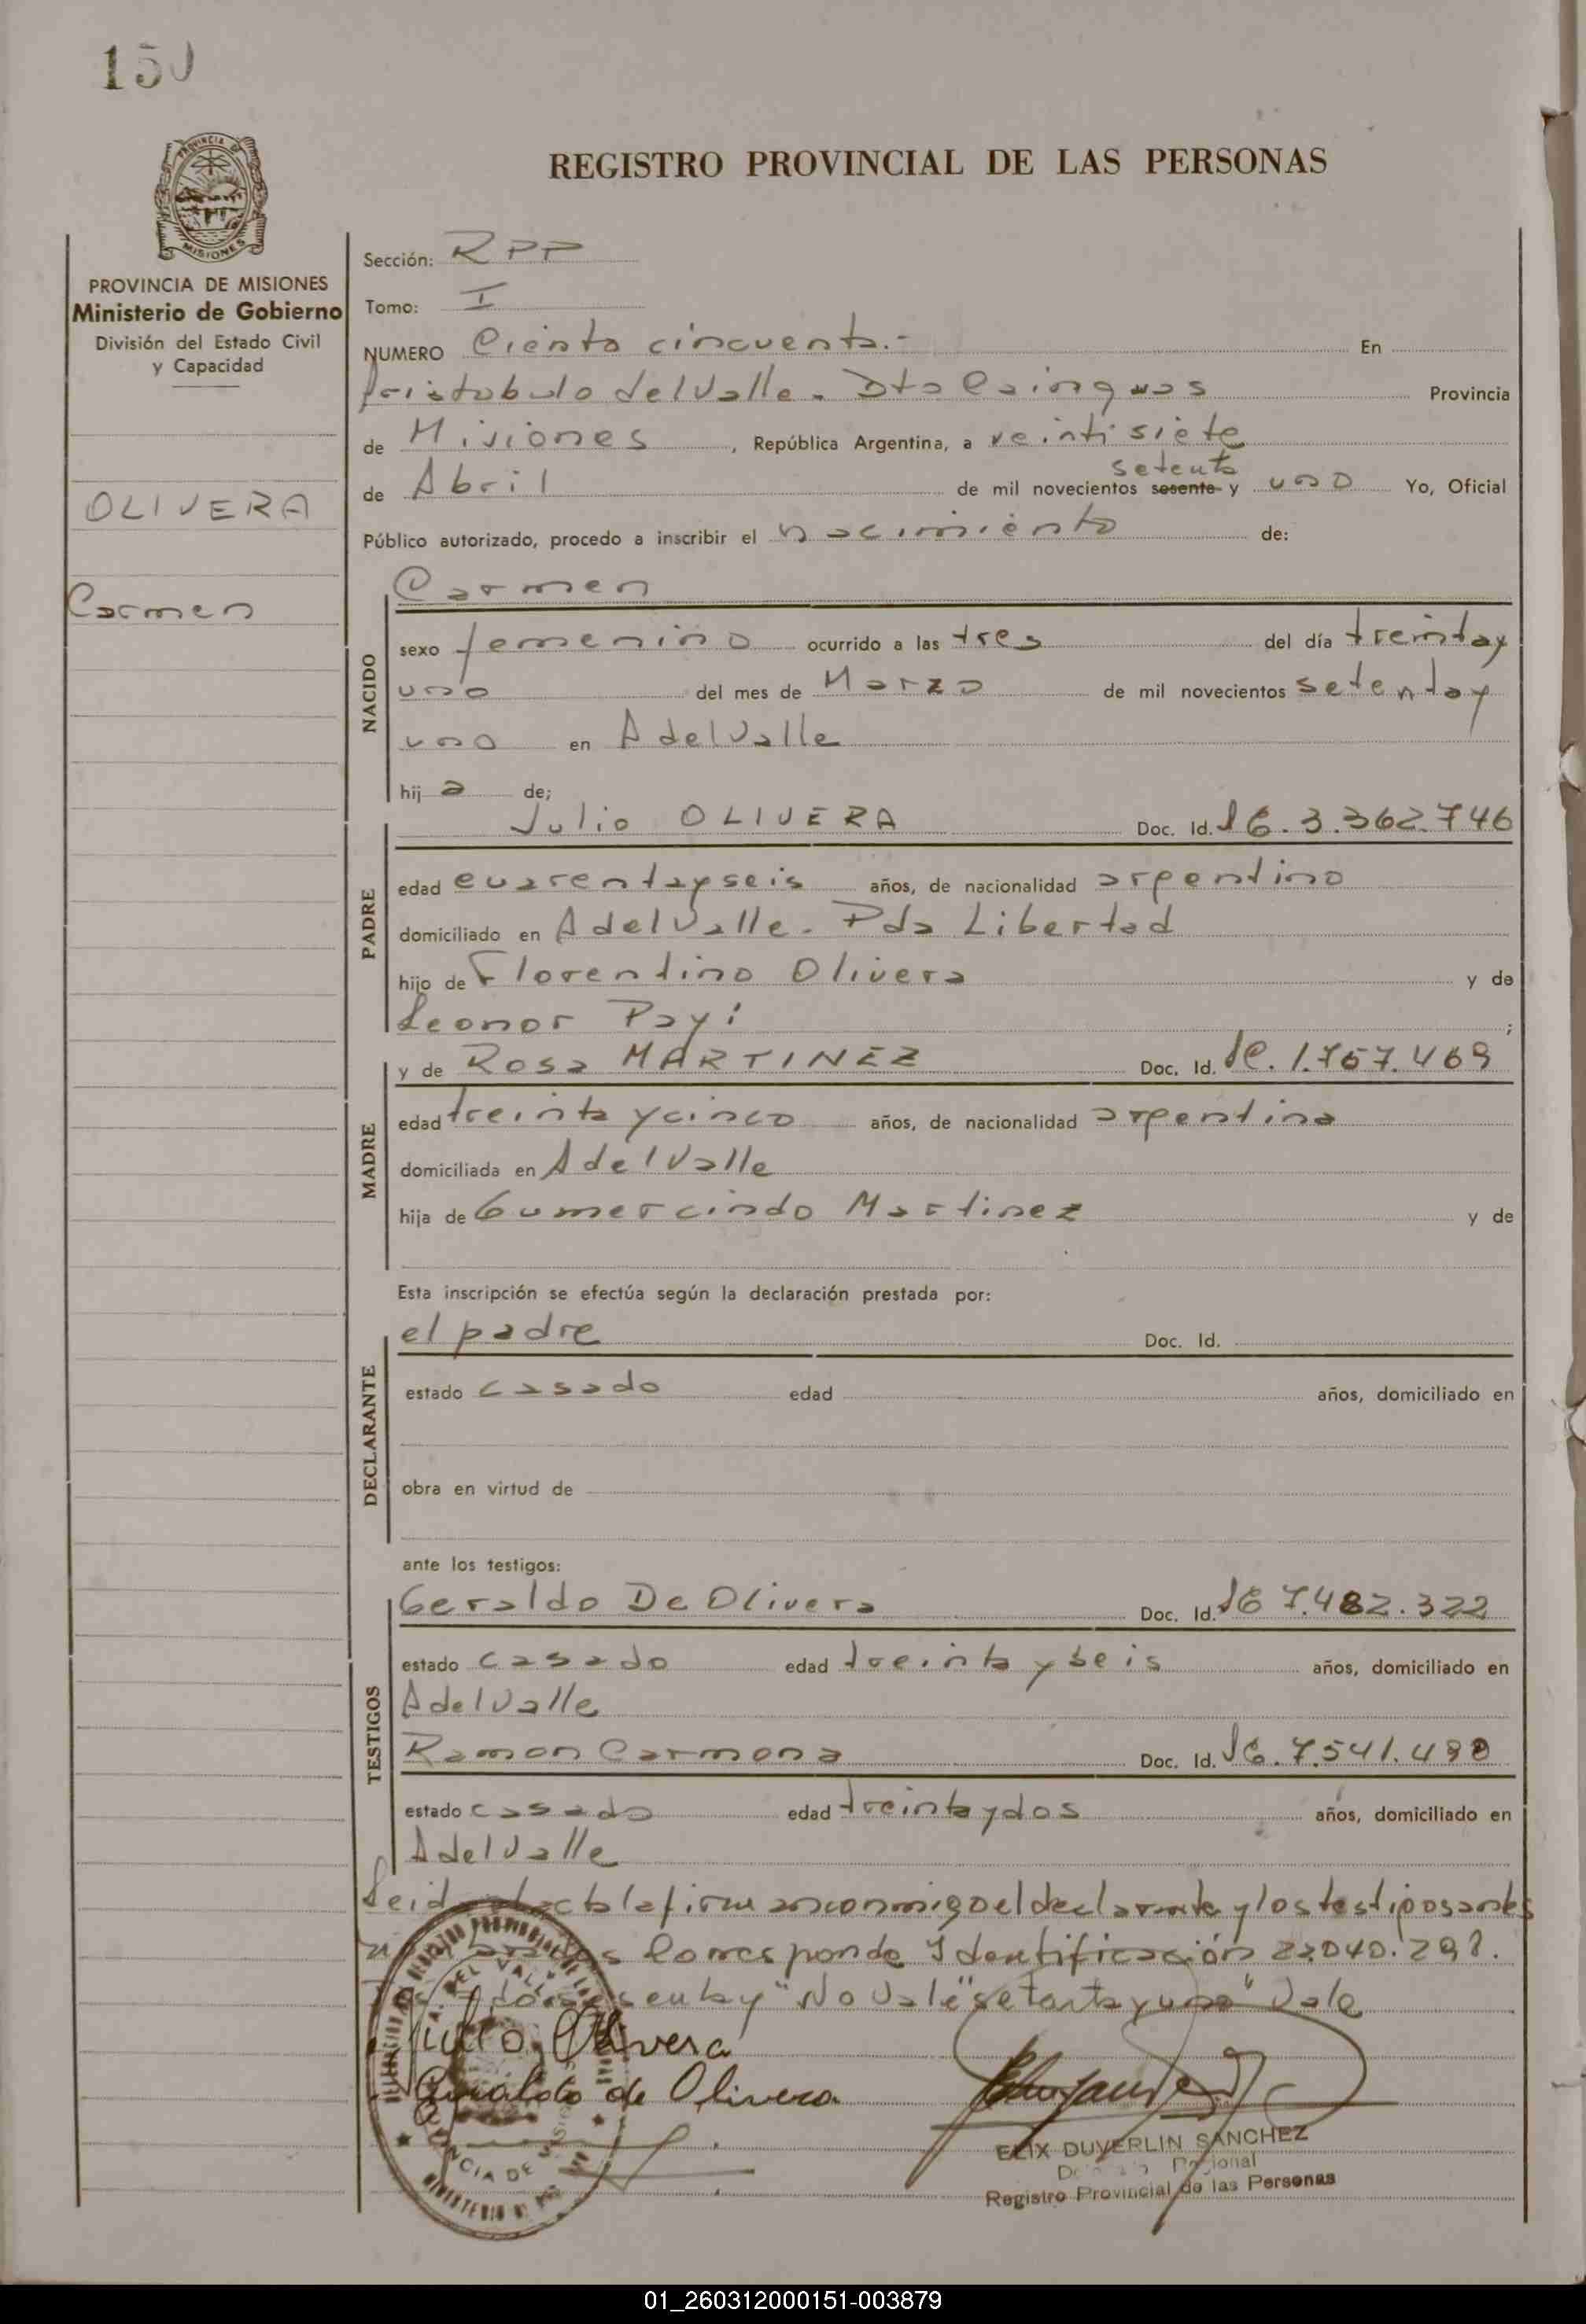 150
PROVINCIA DE MISIONES
REGISTRO PROVINCIAL DE LAS PERSONAS
PROVINCIA DE MISIONES
Ministerio de Gobierno
División del Estado Civil
y Capacidad
OLIVERA
Carmen
Sección: RPP
Tomo: I
NUMERO Ciento cincuenta.- En
Aristobulo del Valle. Dto Cainguas Provincia
de Misiones, República Argentina, a veintisiete
setenta
de Abril de mil novecientos sesenta y uno Yo, Oficial
Público autorizado, procedo a inscribir el nacimiento de:
Carmen
NACIDO
sexo femenino ocurrido a las tres del día treintay
uno del mes de Marzo de mil novecientos setentay
uno en A del Valle
hij a de;
Julio OLIVERA Doc. Id. 3.362.746
PADRE
edad cuarentayseis años, de nacionalidad argentino
domiciliado en A del Valle. Pda Libertad
hijo de Florentino Olivera y de
Leonor Payi;
y de Rosa MARTINEZ Doc. Id. 1.767.469
MADRE
edad treinta y cinco años, de nacionalidad argentina
domiciliada en A del Valle
hija de Gumercindo Martinez y de
Esta inscripción se efectúa según la declaración prestada por:
el padre Doc. Id.
DECLARANTE
estado casado edad años, domiciliado en
obra en virtud de
ante los testigos:
Geraldo De Olivera Doc. Id. 7.482.322
TESTIGOS
estado casado edad treinta y seis años, domiciliado en
A del Valle
Ramon Carmona Doc. Id. 7.541.490
estado casado edad treinta y dos años, domiciliado en
A del Valle
Leida acta la firman conmigo el declarante y los testigos antes
Corresponde Identificación 22.040.
sesenta y "No Vale" setenta y uno" Vale
Julio Olivera
Geraldo de Olivera
ELIX DUVERLIN SANCHEZ
Registro Provincial de las Personas
01_260312000151-003879